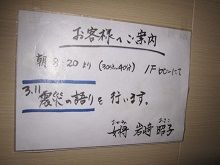 お客様へご案内
朝8:20より(30分~40分) 1Fロビーにて
3.11 震災の語りを行います。
女将 岩崎昭子